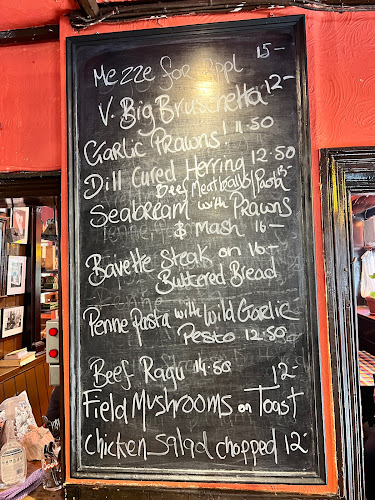 Mezze for 2ppl 15-
V. Big Bruschetta 12-
Garlic Prawns! 11.50
Dill Cured Herring 12.50
Beef Meatballs/Pasta
Seabream with Prawns
& Mash 16-
Bavette Steak on 16-
Buttered Bread
Penne Pasta with Wild Garlic
Pesto 12.50
Beef Ragu 14.50
Field Mushrooms on Toast 12-
Chicken Salad chopped 12